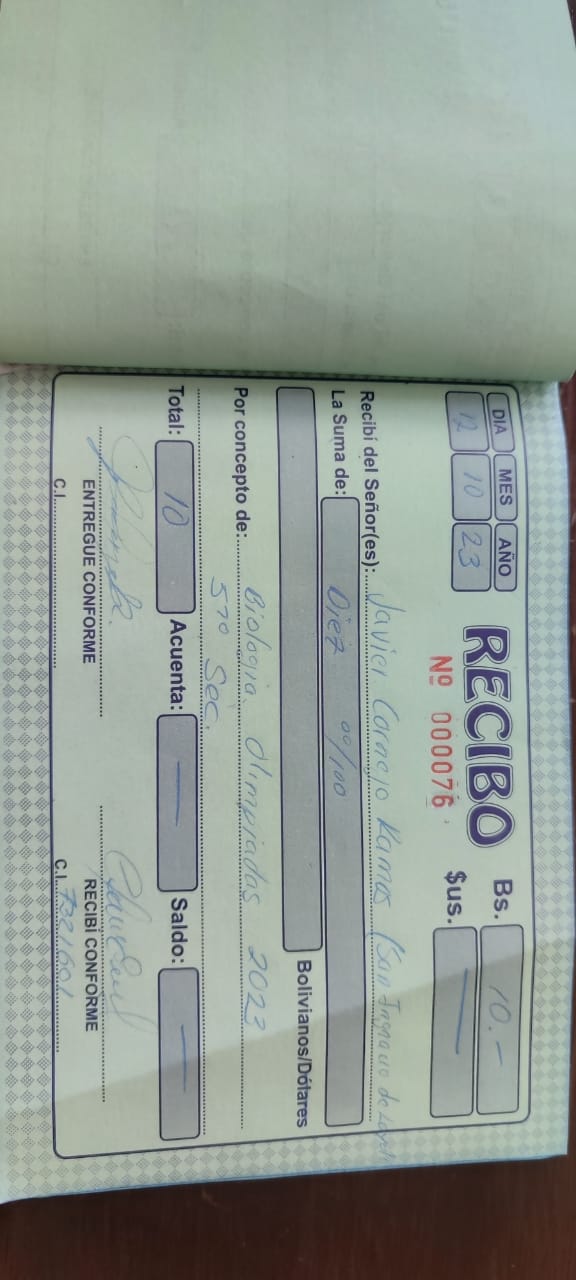 DIA MES AÑO
12 10 23
RECIBO
Nº 000076
Bs. 10.-
$us. —
Recibí del Señor(es): Javier Cornejo Ramos (San Ignacio de
La Suma de: Diez 00/100
Bolivianos/Dólares
Por concepto de: Biologia Olimpiadas 2023
5to Sec.
Total: 10 Acuenta: — Saldo: —
ENTREGUE CONFORME
RECIBÍ CONFORME
C.I.
C.I. 7321601